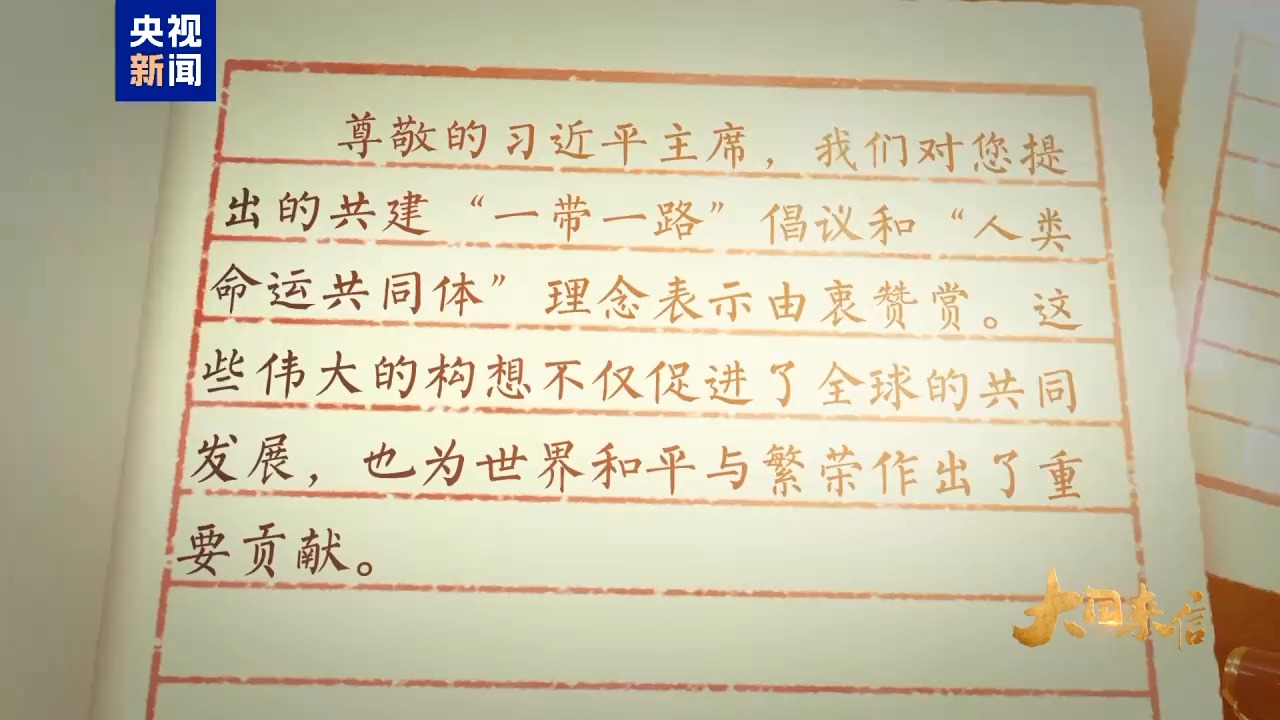 央视
新闻
尊敬的习近平主席，我们对您提
出的共建“一带一路”倡议和“人类
命运共同体”理念表示由衷赞赏。这
些伟大的构想不仅促进了全球的共同
发展，也为世界和平与繁荣作出了重
要贡献。
大国来信